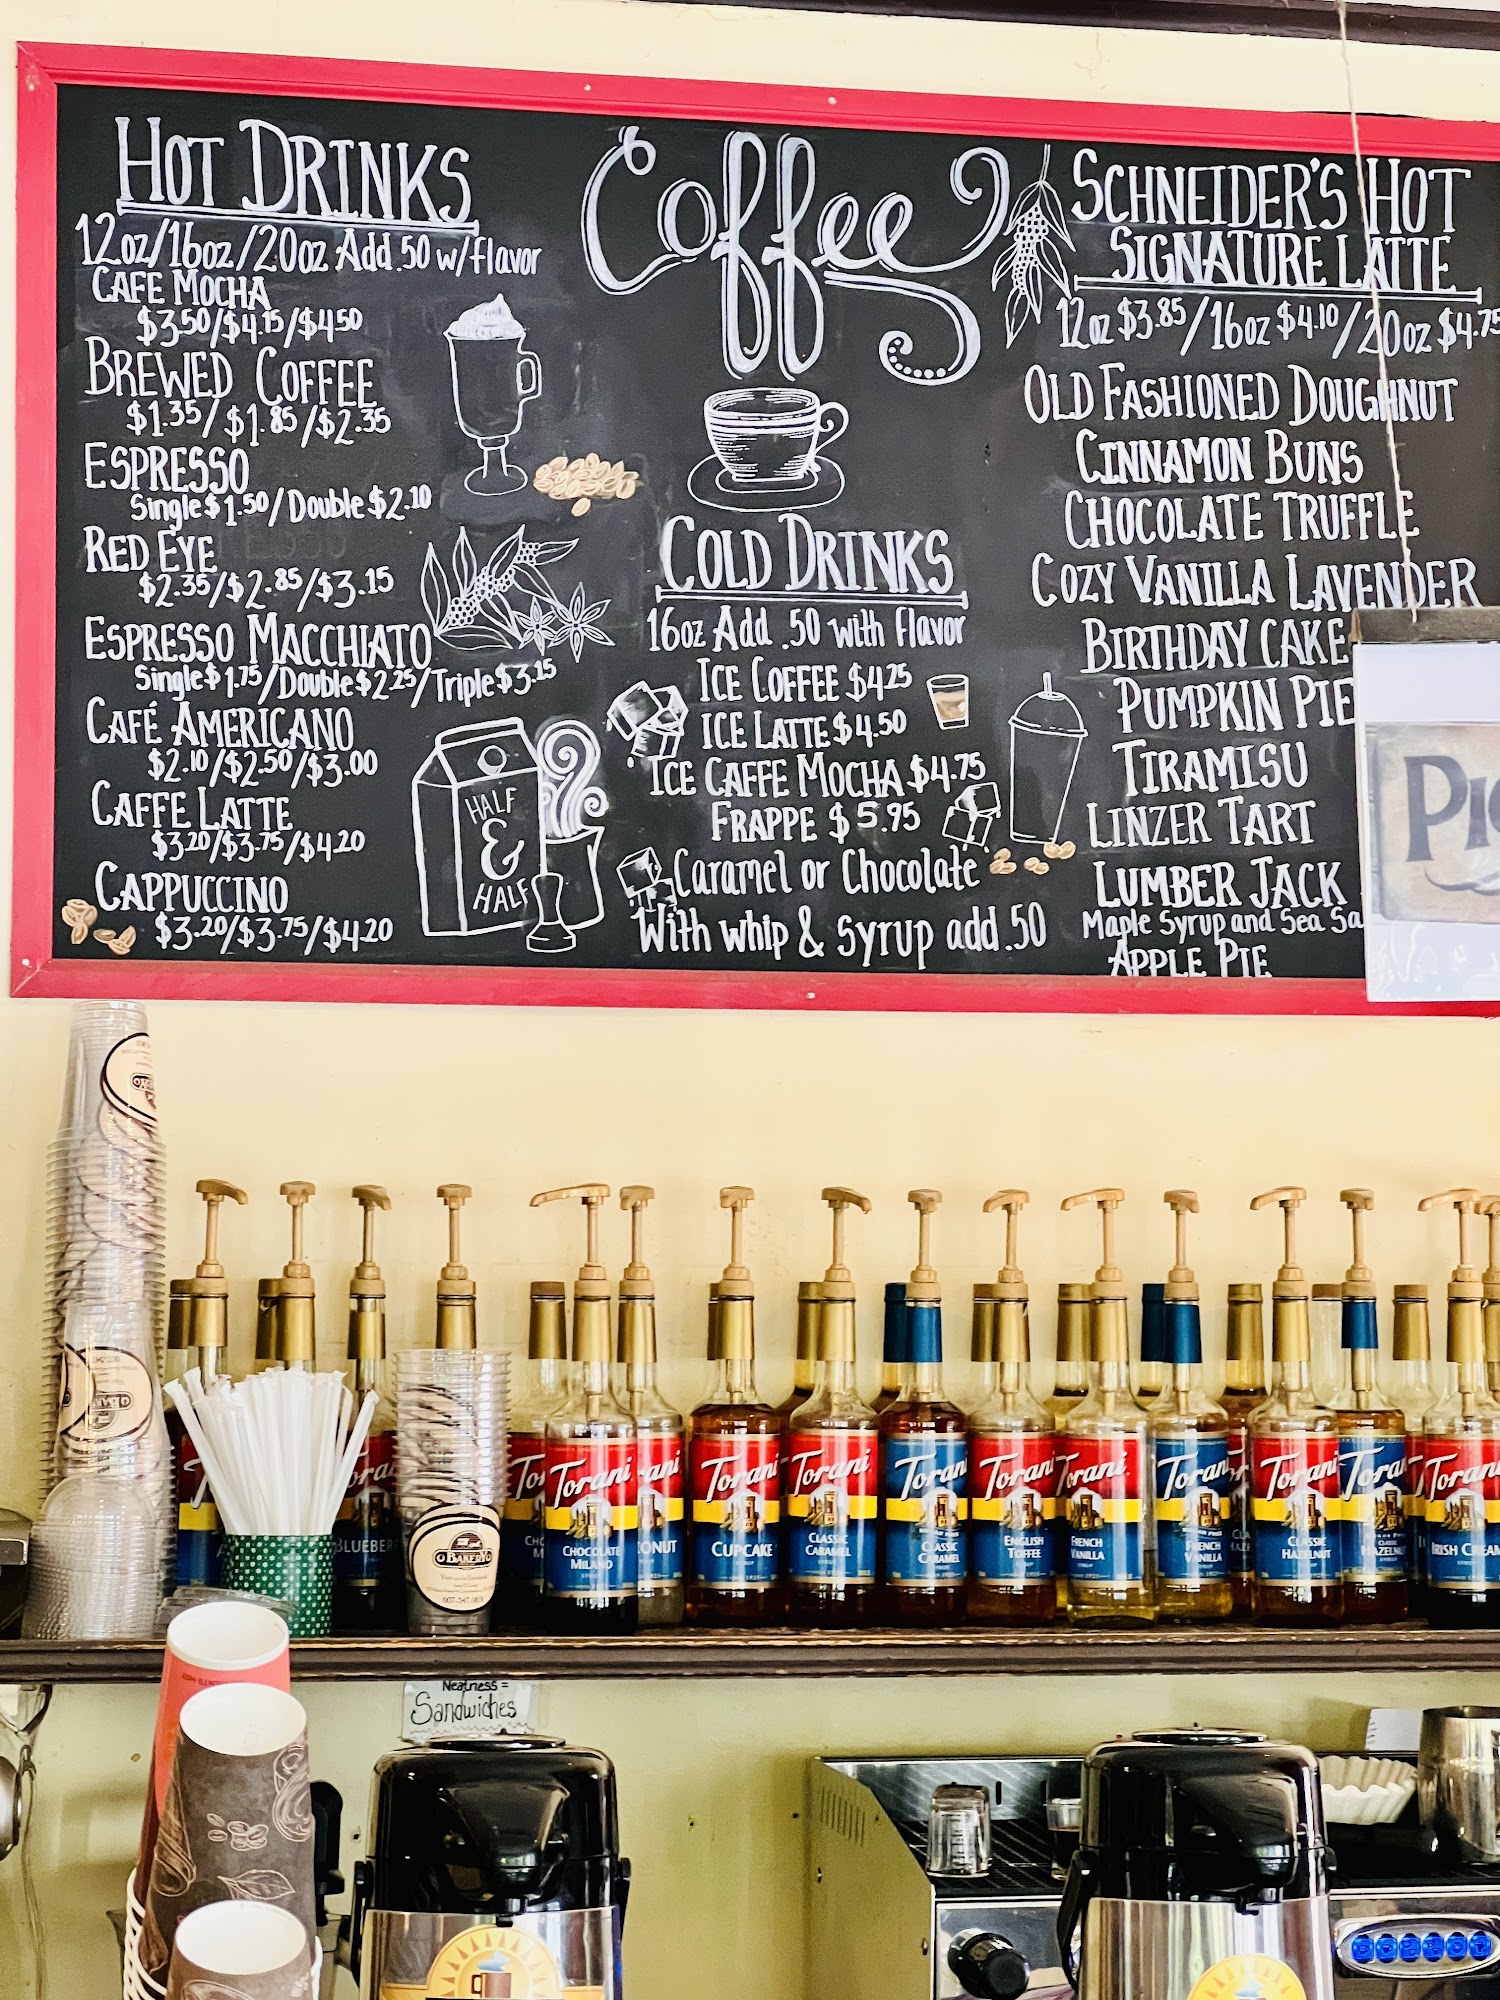 HOT DRINKS
12oz/16oz/20oz Add .50 w/flavor
CAFE MOCHA
$3.50/$4.15/$4.50
BREWED COFFEE
$1.35/$1.85/$2.35
ESPRESSO
Single $1.50/Double $2.10
RED EYE
$2.35/$2.85/$3.15
ESPRESSO MACCHIATO
Single $1.75/Double $2.25/Triple $3.15
CAFÉ AMERICANO
$2.10/$2.50/$3.00
CAFFE LATTE
$3.20/$3.75/$4.20
CAPPUCCINO
$3.20/$3.75/$4.20
HALF
&
HALF
Coffee
COLD DRINKS
16oz Add .50 with flavor
ICE COFFEE $4.25
ICE LATTE $4.50
ICE CAFFE MOCHA $4.75
FRAPPE $5.95
Caramel or Chocolate
With whip & Syrup add .50
SCHNEIDER'S HOT
SIGNATURE LATTE
12oz $3.85/16oz $4.10/20oz $4.75
OLD FASHIONED DOUGHNUT
CINNAMON BUNS
CHOCOLATE TRUFFLE
COZY VANILLA LAVENDER
BIRTHDAY CAKE
PUMPKIN PIE
TIRAMISU
LINZER TART
LUMBER JACK
Maple Syrup and Sea Sa
APPLE PIE
Torani
CHOCOLATE
MILANO
Torani
CUPCAKE
Torani
CLASSIC
CARAMEL
Torani
CLASSIC
CARAMEL
Torani
ENGLISH
TOFFEE
Torani
FRENCH
VANILLA
Torani
FRENCH
VANILLA
Torani
CLASSIC
HAZELNUT
Torani
CLASSIC
Torani
IRISH CREAM
BAKERY
Neatness =
Sandwiches